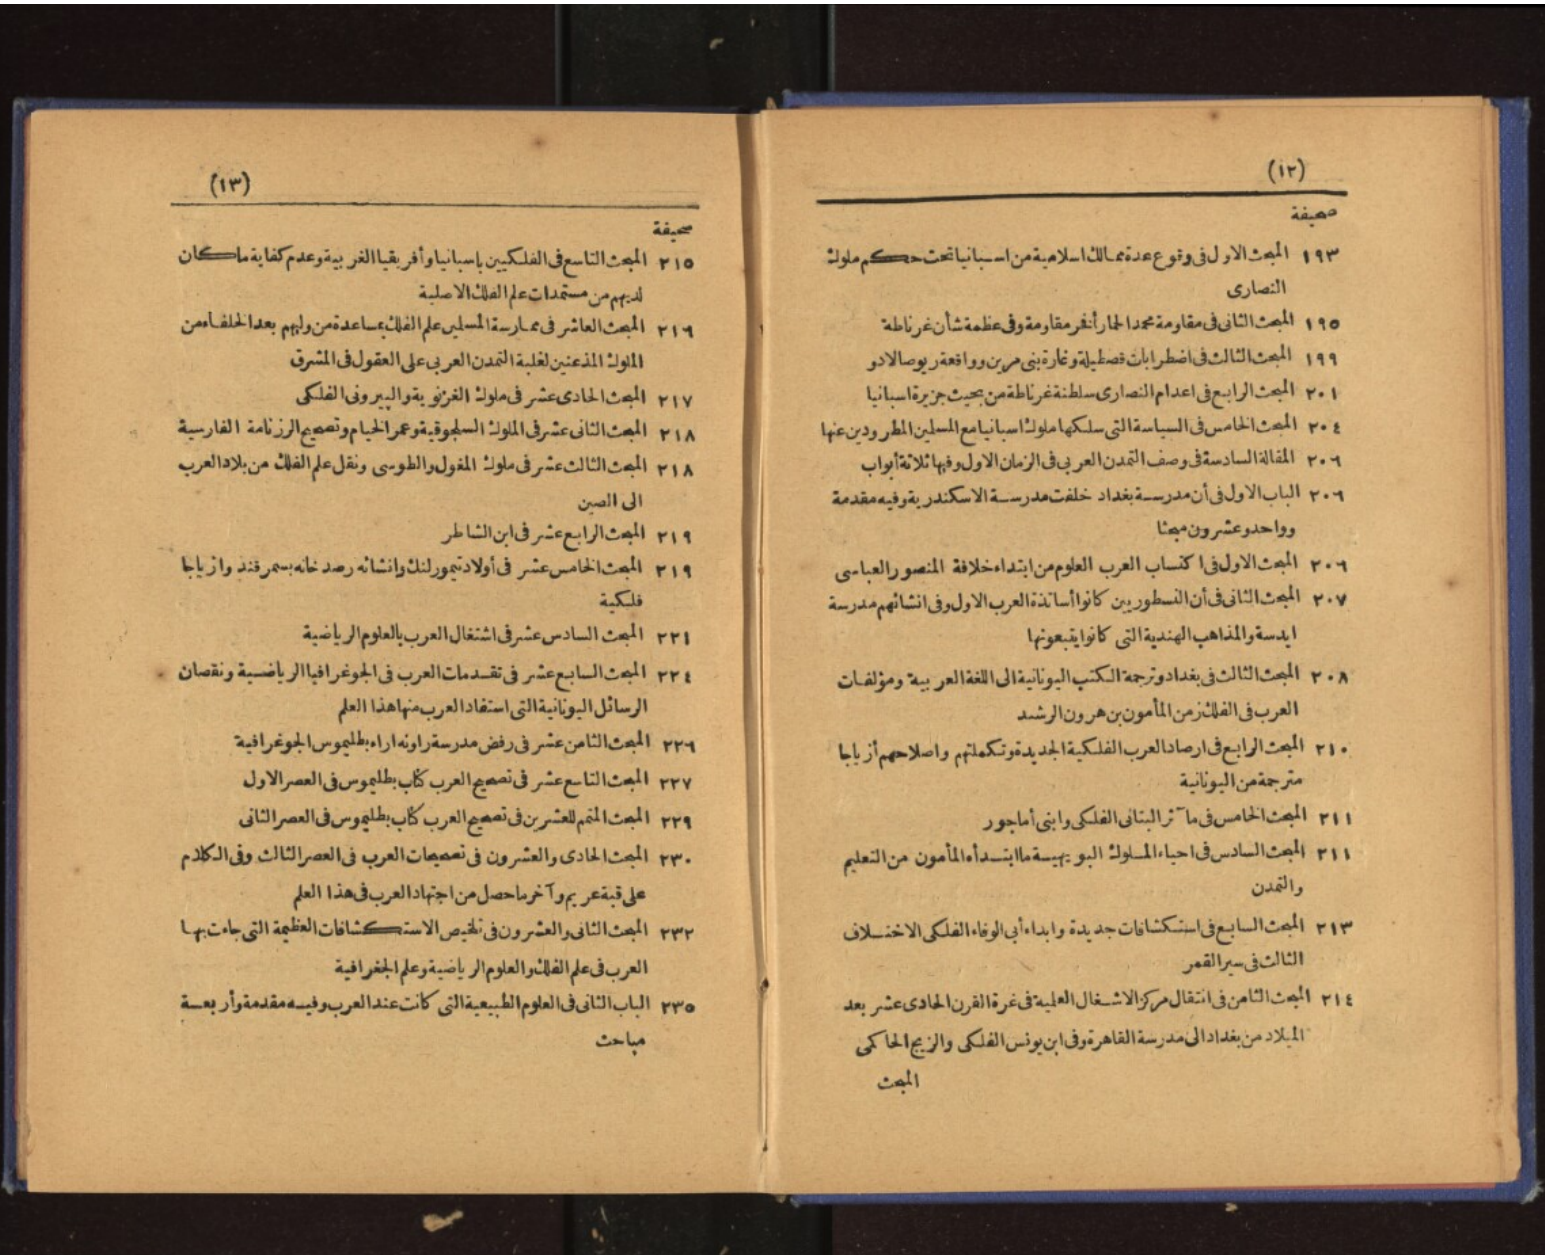 (١٢)
صحيفة
١٩٣ المبحث الاول فى وقوع عدة ممالك اسلامية من اسبانيا تحت حكم ملوك
النصارى
١٩٥ المبحث الثانى فى مقاومة محمد الحمار أنفر مقاومة وفى عظمة شأن غرناطة
١٩٩ المبحث الثالث فى اضطرابات قصطيلة وغارة بنى مرين وواقعة ريو صالادو
٢٠١ المبحث الرابع فى اعدام النصارى سلطنة غرناطة من بحيث جزيرة اسبانيا
٢٠٤ المبحث الخامس فى السياسة التى سلكها ملوك اسبانيا مع المسلمين المطرودين عنها
٢٠٦ المقالة السادسة فى وصف التمدن العربى فى الزمان الاول وفيها ثلاثة أبواب
٢٠٦ الباب الاول فى أن مدرسة بغداد خلفت مدرسة الاسكندرية وفيه مقدمة
وواحد وعشرون مبحثا
٢٠٦ المبحث الاول فى اكتساب العرب العلوم من ابتداء خلافة المنصور العباسى
٢٠٧ المبحث الثانى فى أن النسطوريين كانوا أساتذة العرب الاول وفى انشائهم مدرسة
ايدسة والمذاهب الهندية التى كانوا يتبعونها
٢٠٨ المبحث الثالث فى بغداد وترجمة الكتب اليونانية الى اللغة العربية ومؤلفات
العرب فى الفلك زمن المأمون بن هرون الرشيد
٢١٠ المبحث الرابع فى ارصاد العرب الفلكية الجديدة وتكملتهم واصلاحهم أزياجا
مترجمة من اليونانية
٢١١ المبحث الخامس فى مآثر البتانى الفلكى وابنى أماجور
٢١١ المبحث السادس فى احياء الملوك البويهية ما ابتدأه المأمون من التعليم
والتمدن
٢١٣ المبحث السابع فى استكشافات جديدة وابداء أبى الوفاء الفلكى الاختلاف
الثالث فى سير القمر
٢١٤ المبحث الثامن فى انتقال مركز الاشغال العلمية فى غرة القرن الحادى عشر بعد
الميلاد من بغداد الى مدرسة القاهرة وفى ابن يونس الفلكى والزيج الحاكمى
المبحث
(١٣)
صحيفة
٢١٥ المبحث التاسع فى الفلكيين باسبانيا وأفريقيا الغربية وعدم كفاية ما كان
لديهم من مستمدات علم الفلك الاصلية
٢١٦ المبحث العاشر فى ممارسة المسلمين علم الفلك بمساعدة من وليهم بعد الخلفاء من
الملوك المذعنين لغلبة التمدن العربى على العقول فى المشرق
٢١٧ المبحث الحادى عشر فى ملوك الغزنوية والبيرونى الفلكى
٢١٨ المبحث الثانى عشر فى الملوك السلجوقية وعمر الخيام وتصحيح الرزنامة الفارسية
٢١٨ المبحث الثالث عشر فى ملوك المغول والطوسى ونقل علم الفلك من بلاد العرب
الى الصين
٢١٩ المبحث الرابع عشر فى ابن الشاطر
٢١٩ المبحث الخامس عشر فى أولاد تيمورلنك وانشائه رصد خانه بسمرقند وازياجا
فلكية
٢٢١ المبحث السادس عشر فى اشتغال العرب بالعلوم الرياضية
٢٢٤ المبحث السابع عشر فى تقدمات العرب فى الجوغرافيا الرياضية ونقصان
الرسائل اليونانية التى استفاد العرب منها هذا العلم
٢٢٦ المبحث الثامن عشر فى رفض مدرسة راونه اراء بطليموس الجوغرافية
٢٢٧ المبحث التاسع عشر فى تصحيح العرب كتاب بطليموس فى العصر الاول
٢٢٩ المبحث المتمم للعشرين فى تصحيح العرب كتاب بطليموس فى العصر الثانى
٢٣٠ المبحث الحادى والعشرون فى تصحيحات العرب فى العصر الثالث وفى الكلام
على قبة عريم وآخر ما حصل من اجتهاد العرب فى هذا العلم
٢٣٢ المبحث الثانى والعشرون فى تلخيص الاستكشافات العظيمة التى جاءت بها
العرب فى علم الفلك والعلوم الرياضية وعلم الجغرافية
٢٣٥ الباب الثانى فى العلوم الطبيعية التى كانت عند العرب وفيه مقدمة وأربعة
مباحث